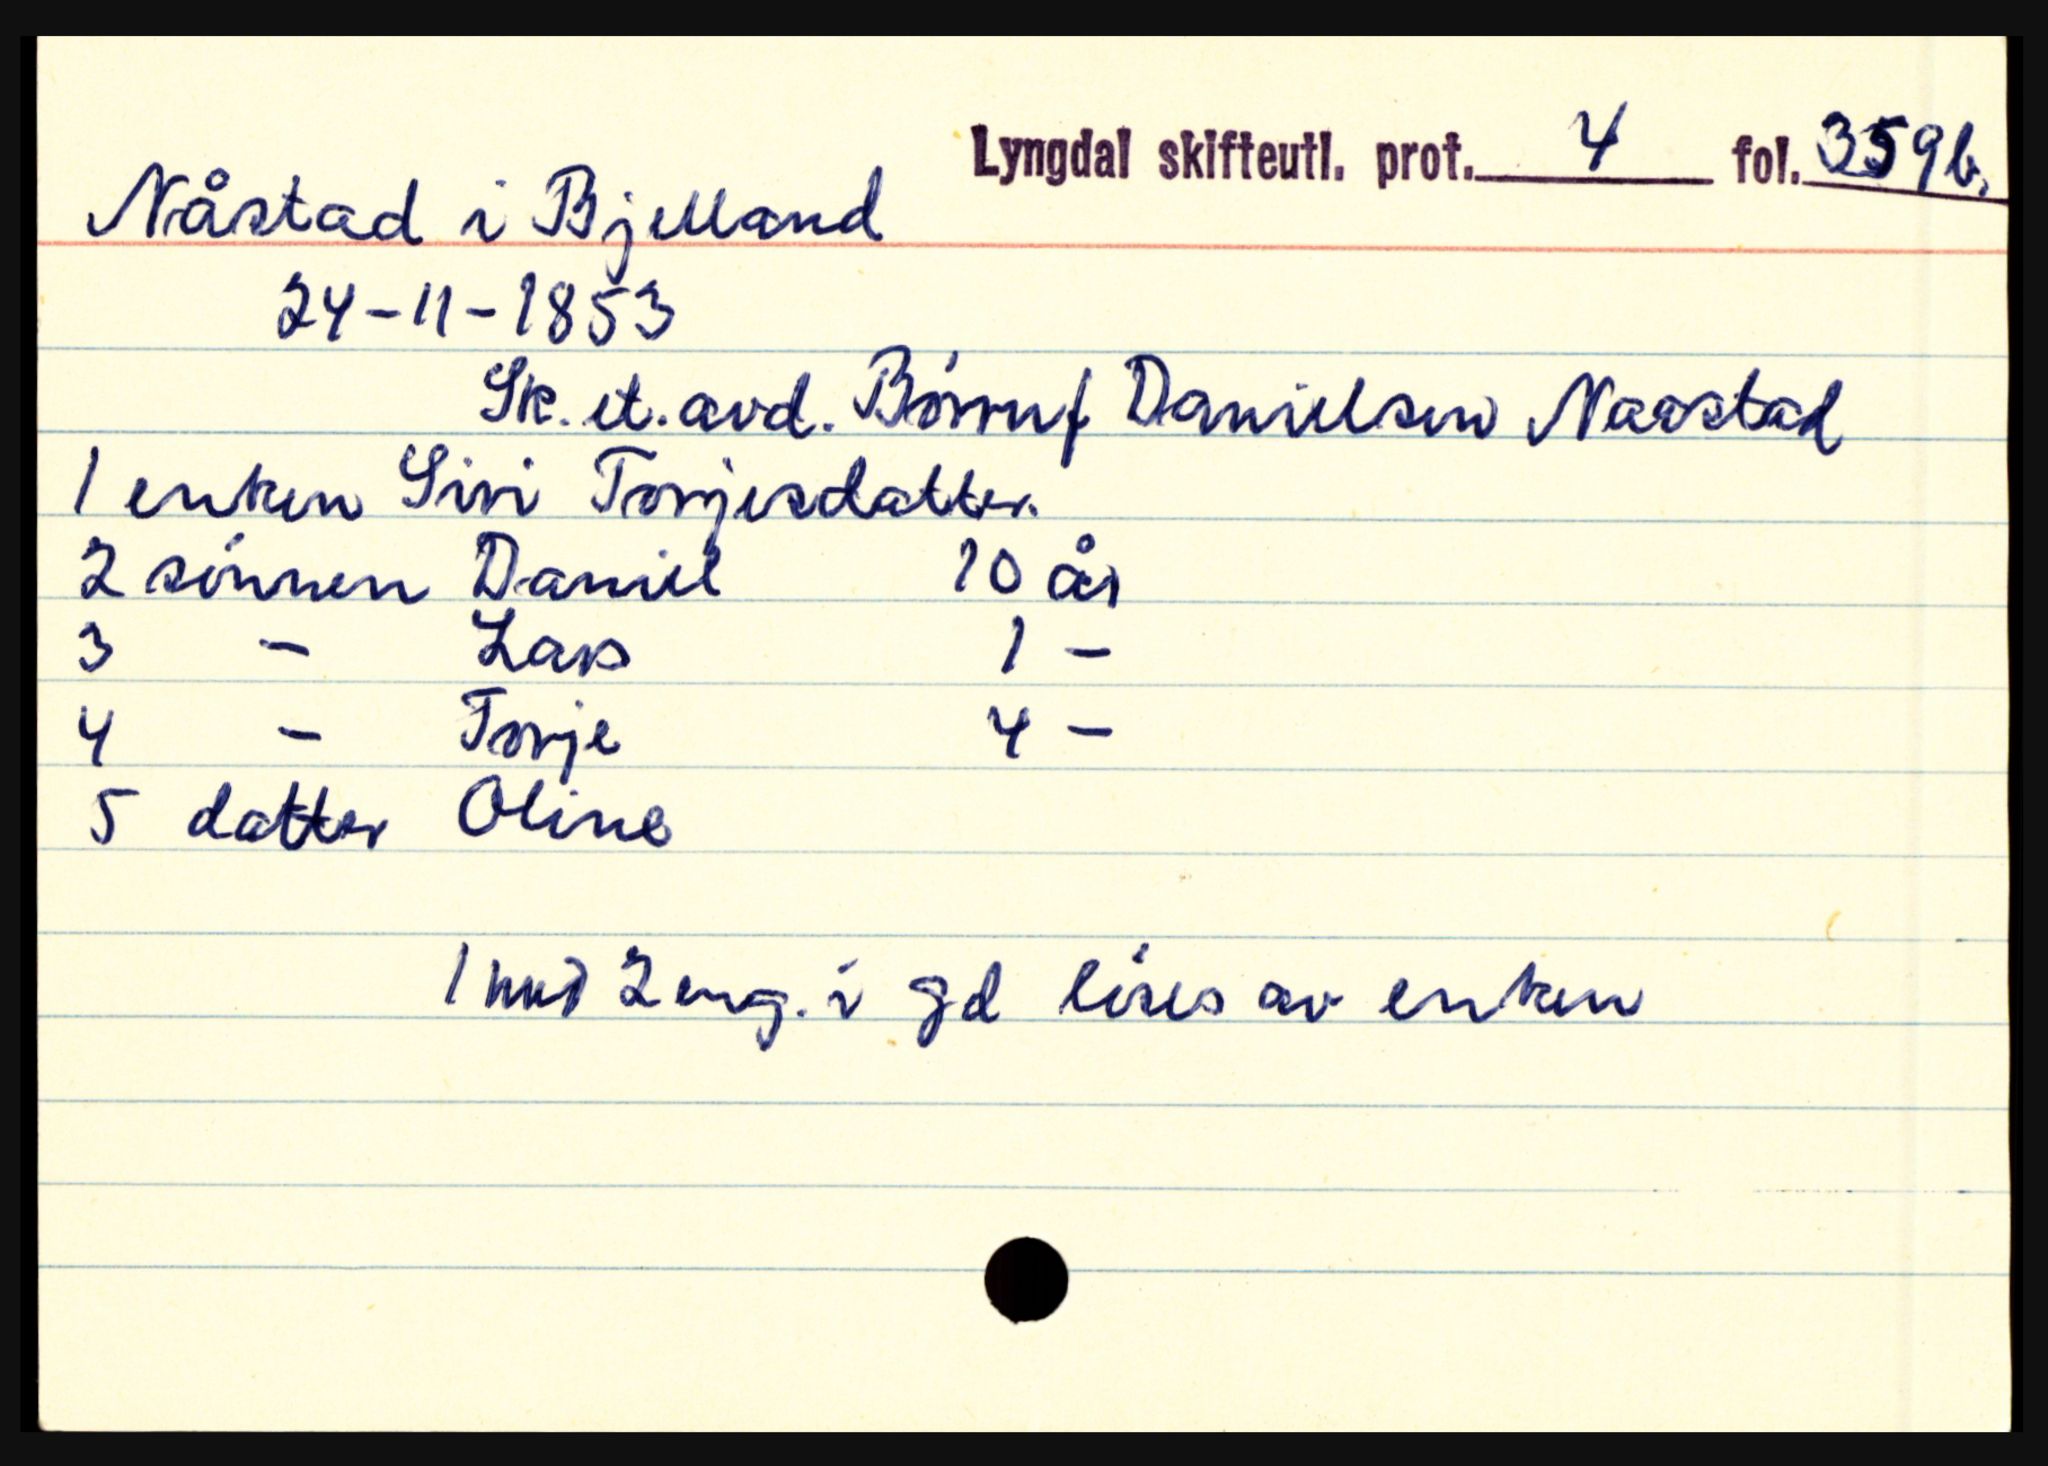 Lyngdal skifteutl. prot. 4 fol. 359b.
Nåstad i Bjelland
24-11-1853
Sk. et. avd. Børruf Danielsen Naastad
1 enken Siri Torjesdatter.
2 sønnen Daniel 10 år
3 - Lars 1 -
4 - Torje 4 -
5 datter Oline
1 hud 2 eng. i gd løses av enken